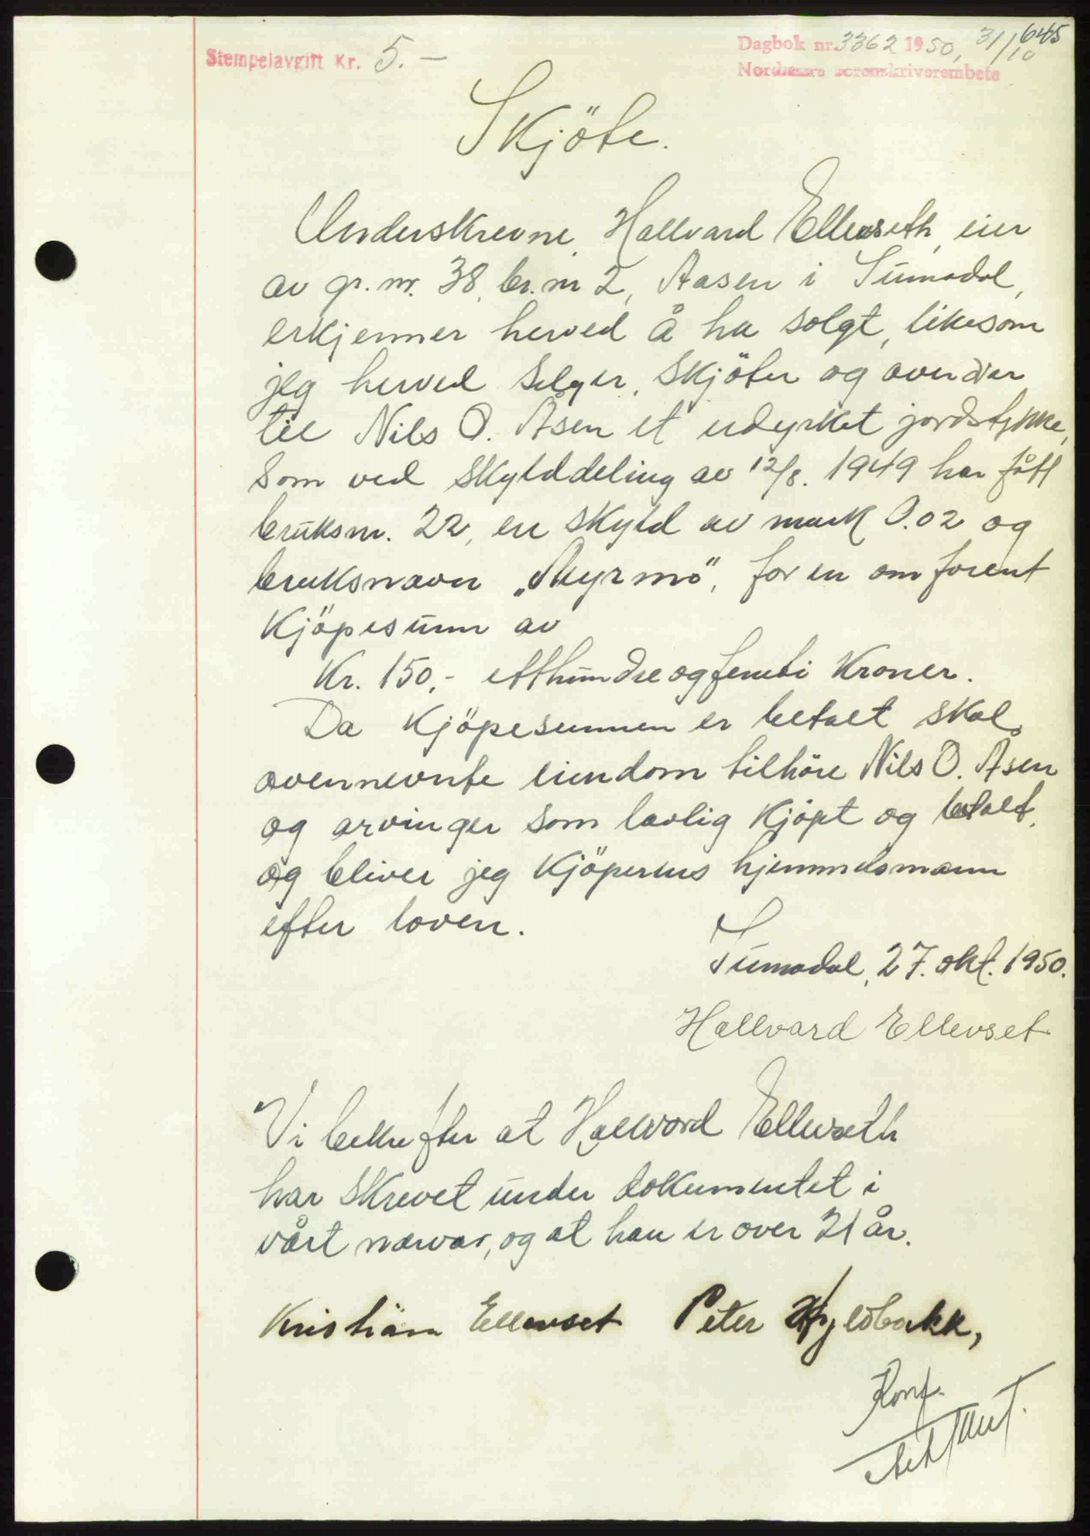 Stempelavgift Kr. 5.-
Dagbok nr. 3362 1950, 31/10 645
Nordmøre sorenskriverembete
Skjöte.
Underskrevne, Hallvard Ellevseth, eier
av gr. nr. 38, br. nr 2, Aasen i Surnadal,
erkjenner herved å ha solgt, likesom
jeg herved selger, skjöter og overdrar
til Nils O. Åsen et udyrket jordstykke,
som ved skylddeling av 12/8. 1949 har fått
bruksnr. 22, en skyld av mark 0.02 og
bruksnavn „Myrmo", for en omforent
Kjöpesum av
Kr. 150,- etthundreogfemti Kroner.
Da Kjöpesummen er betalt skal
ovennevnte eiendom tilhöre Nils O. Åsen
og arvinger som lovlig Kjöpt og betalt,
og bliver jeg Kjöperens hjemmelsmann
efter loven.
Surnadal, 27. okt. 1950.
Hallvard Ellevset
Vi bekrefter at Hallvard Ellevseth
har skrevet under dokumentet i
vårt nærvær, og at han er over 21 år.
Kristian Ellevset Peter Hyldbakk,
Konf.